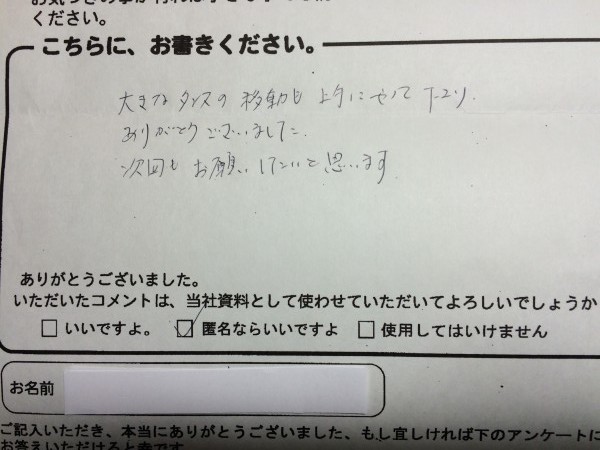 ください。
こちらに、お書きください。
大きなタンスの移動も上手にやって下さり、
ありがとうございました。
次回もお願いしたいと思います
ありがとうございました。
いただいたコメントは、当社資料として使わせていただいてよろしいでしょうか
□ いいですよ。 ☑ 匿名ならいいですよ □ 使用してはいけません
お名前
ご記入いただき、本当にありがとうございました、もし宜しければ下のアンケートに
お答えいただけると幸です